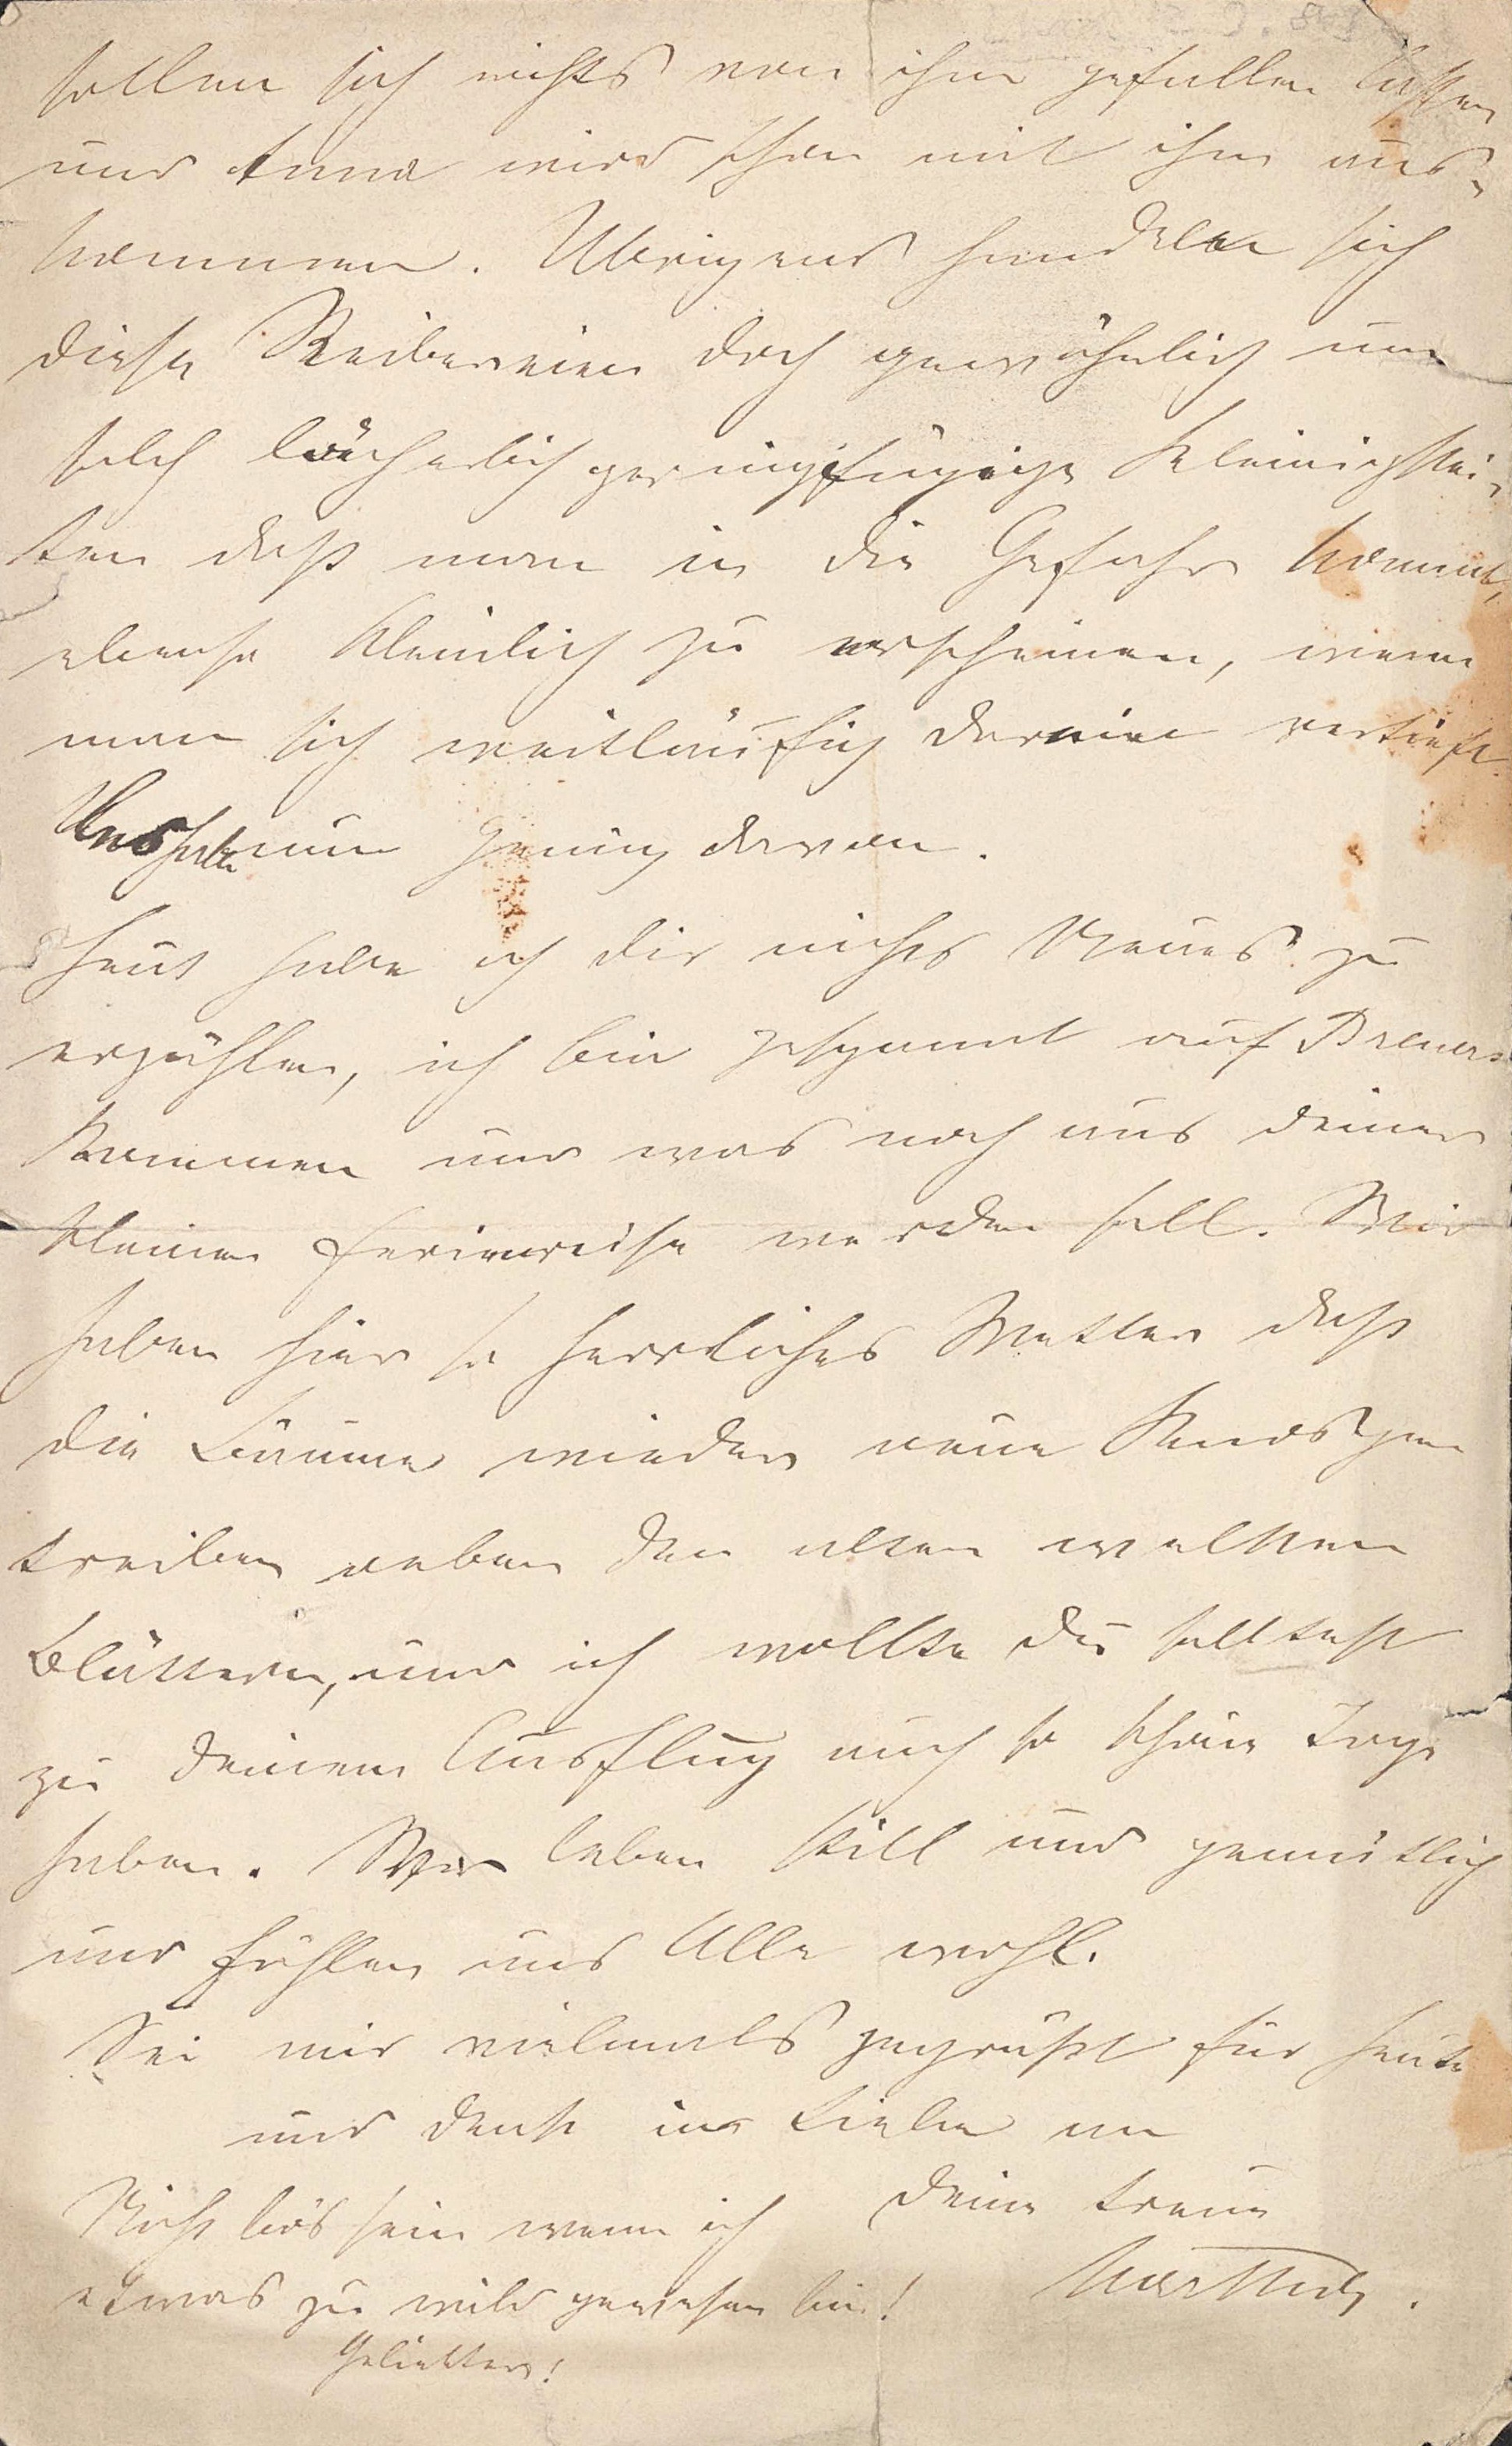 sollen sich nichts von ihm gefallen lassen
und Anna wird schon mit ihm aus-
kommen. Übrigens handeln sich
diese Reibereien doch gewöhnlich um
solch lächerlich geringfügige Kleinigkei-
ten daß man in die Gefahr kommt,
ebenso kleinlich zu erscheinen, wenn
man sich weitläufig darein vertieft.
habe nun genug davon.
Heut habe ich dir nichts Neues zu
erzählen, ich bin gespannt auf Breuers
Kommen und was noch aus deiner
kleinen Ferienreise werden soll. Wir
haben hier so herrliches Wetter daß
die Bäume wieder neue Knospen
treiben neben den alten welken
Blättern, und ich wollte du solltest
zu deinem Ausflug auch so schöne Tage
haben. Wir leben still und gemütlich
und fühlen uns Alle wohl.
Sei mir vielmals gegrüßt für heute
und denk in Liebe an
deine treue
Martha.
Nicht bös sein wenn ich
etwas zu wild gewesen bin!
Geliebter!